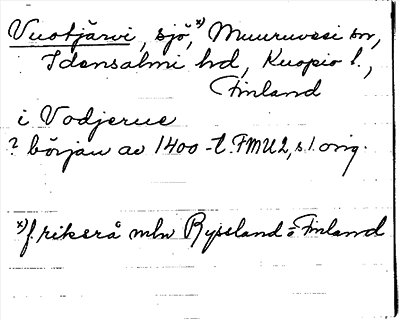 Vuotjärvi, sjö, x) Muuruvesi sn,
Idensalmi hd, Kuopio l.,
Finland
i Vodjerue
? början av 1400-t. FMU2, s.1. orig.
x) f. riksrå mln Ryssland o Finland